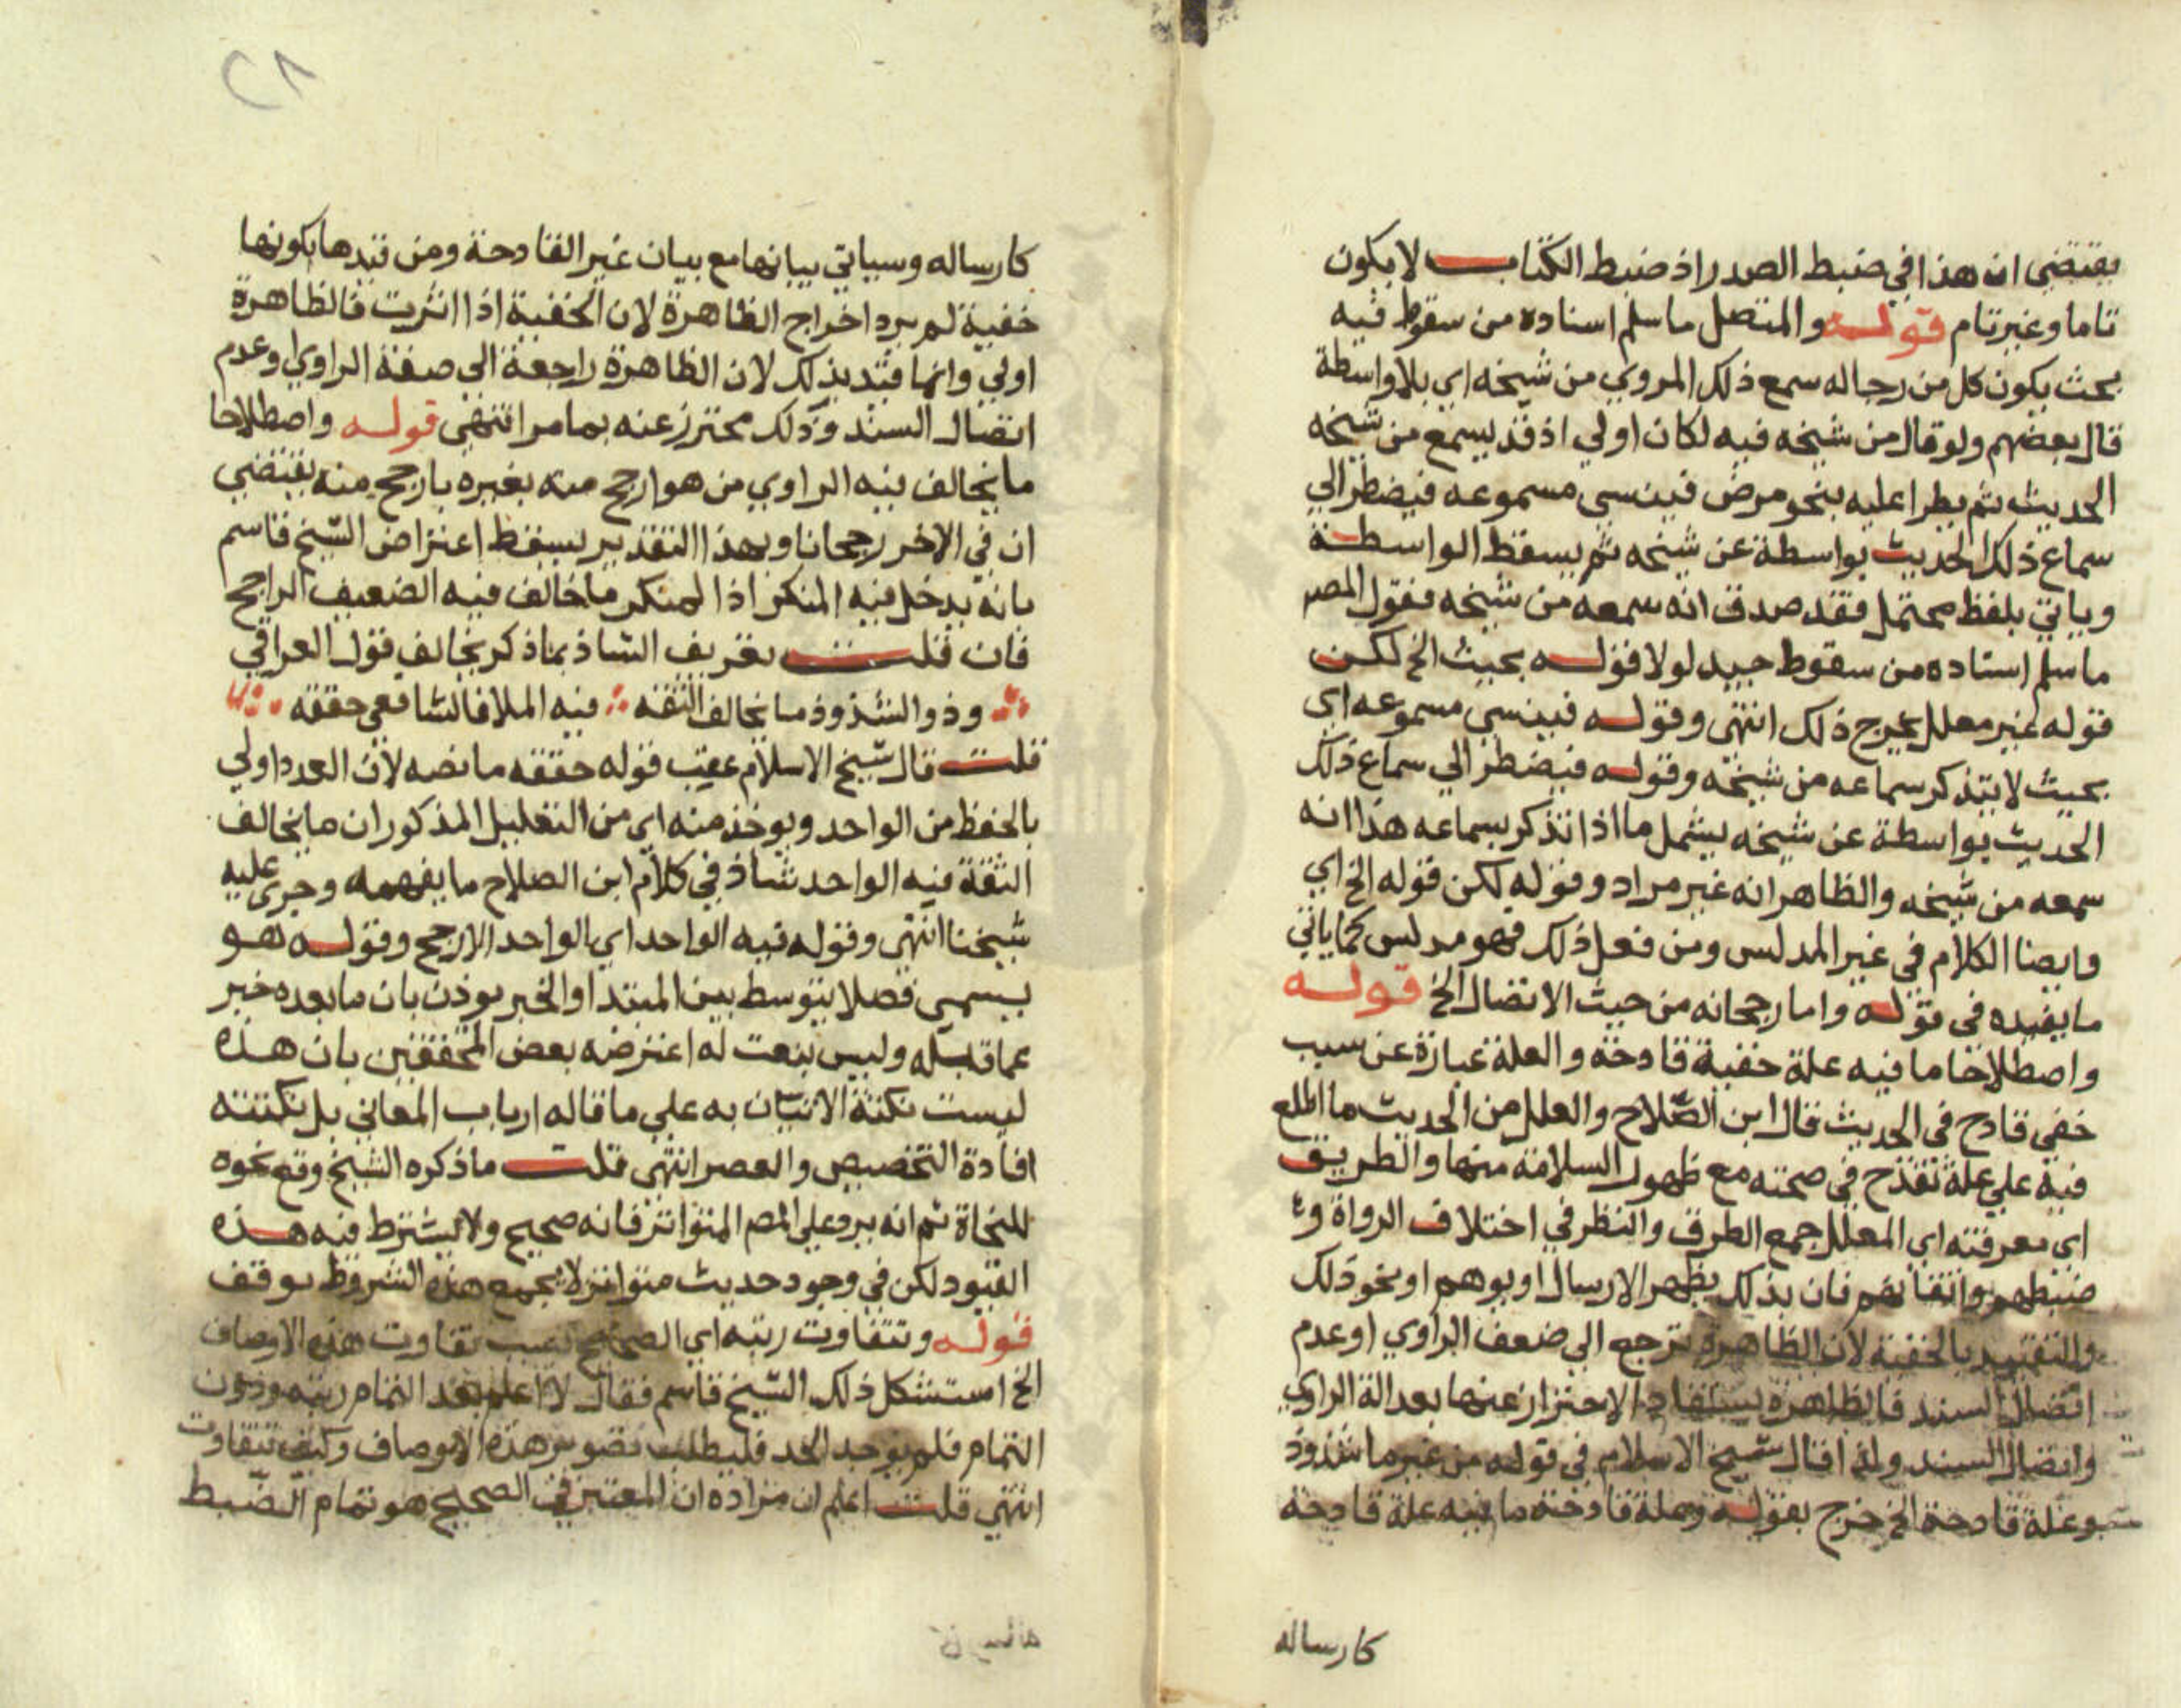 يقتضي ان هذا في ضبط الصدر اذ ضبط الكتاب لا يكون
تاما وغير تام قوله والمتصل ما سلم اسناده من سقوط فيه
بحيث يكون كل من رجاله سمع ذلك المروي من شيخه اي بلا واسطة
قال بعضهم ولو قال من شيخه فيه لكان اولي اذ قد يسمع من شيخه
الحديث ثم يطرا عليه بنحو مرض فينسي مسموعه فيضطر الي
سماع ذلك الحديث بواسطة عن شيخه ثم يسقط الواسطة
وياتي بلفظ محتمل فقد صدق انه سمعه من شيخه فقول المص
ما سلم اسناده من سقوط جيد لولا قوله بحيث الخ لكن
قوله غير معلل يخرج ذلك انتهى وقوله فينسي مسموعه اي
بحيث لا يتذكر سماعه من شيخه وقوله فيضطر الي سماع ذلك
الحديث بواسطة عن شيخه يشمل ما اذا تذكر بسماعه هذا انه
سمعه من شيخه والظاهر انه غير مراد وقوله لكن قوله الخ اي
وايضا الكلام في غير المدلس ومن فعل ذلك فهو مدلس كما ياتي
ما يفيده في قوله واما رجحانه من حيث الاتصال الخ قوله
واصطلاحا ما فيه علة خفية قادحة والعلة عبارة عن سبب
خفي قادح في الحديث قال ابن الصلاح والعلل من الحديث ما اطلع
فيه علي علة تقدح في صحته مع ظهور السلامة منها والطريق
اي معرفته اي المعلل جمع الطرق والنظر في اختلاف الرواة و
ضبطهم واتقانهم فان بذلك يظهر الارسال او يوهم او نحو ذلك
والتقييد بالخفية لان الظاهرة ترجع الي ضعف الراوي او عدم
اتصال السند فالظاهرة يستفاد الاحتراز عنها بعدالة الراوي
واتصال السند ولذا قال شيخ الاسلام في قوله من غير ما شذوذ
وعلة قادحة الخ خرج بقوله وعلة قادحة ما فيه علة قادحة
كارساله
كارساله وسياتي بيانها مع بيان غير القادحة ومن قيدها بكونها
خفية لم يرد اخراج الظاهرة لان الخفية اذا اثرت فالظاهرة
اولي وانما قيد بذلك لان الظاهرة راجعة الى صفة الراوي او عدم
اتصال السند وذلك محترز عنه بما مر انتهى قوله واصطلاحا
ما يخالف فيه الراوي من هو ارجح منه يغيره بارجح منه يقتضي
ان في الاخر رجحانا وبهذا التقدير يسقط اعتراض الشيخ قاسم
بانه يدخل فيه المنكر اذ المنكر ما خالف فيه الضعيف الراجح
فان قلت تعريف الشاذ بما ذكر يخالف قول العراقي
وذو الشذوذ ما يخالف الثقه فيه الملا فالشافعي حققه
قلت قال شيخ الاسلام عقب قوله حققه ما نصه لان العدد اولي
بالحفظ من الواحد ويوخذ منه اي من التعليل المذكور ان ما يخالف
الثقة فيه الواحد شاذ في كلام ابن الصلاح ما يفهمه وجري عليه
شيخنا انتهى وقوله فيه الواحد اي الواحد الارجح وقوله هو
يسمى فصلا يتوسط بين المبتدا والخبر يوذن بان ما بعده خبر
عما قبله وليس بنعت له اعترضه بعض المحققين بان هذه
ليست نكتة الاتيان به علي ما قاله ارباب المعاني بل نكتته
افادة التخصيص والعصر انتهى قلت ما ذكره الشيخ وقع نحوه
للنحاة ثم انه يرد علي المص المتواتر فانه صحيح ولا يشترط فيه هذه
القيود لكن في وجود حديث متواتر لا يجمع هذه الشروط توقف
قوله وتتفاوت رتبه اي الصحيح بسبب تفاوت هذه الاوصاف
الخ استشكل ذلك الشيخ قاسم فقال لا اعلم بعد التمام رتبه ودون
التمام فلم يوجد الحد فليطلب تصوير هذه الاوصاف وكيف تتفاوت
انتهي قلت اعلم ان مراده ان المعتبر في الصحيح هو تمام الضبط